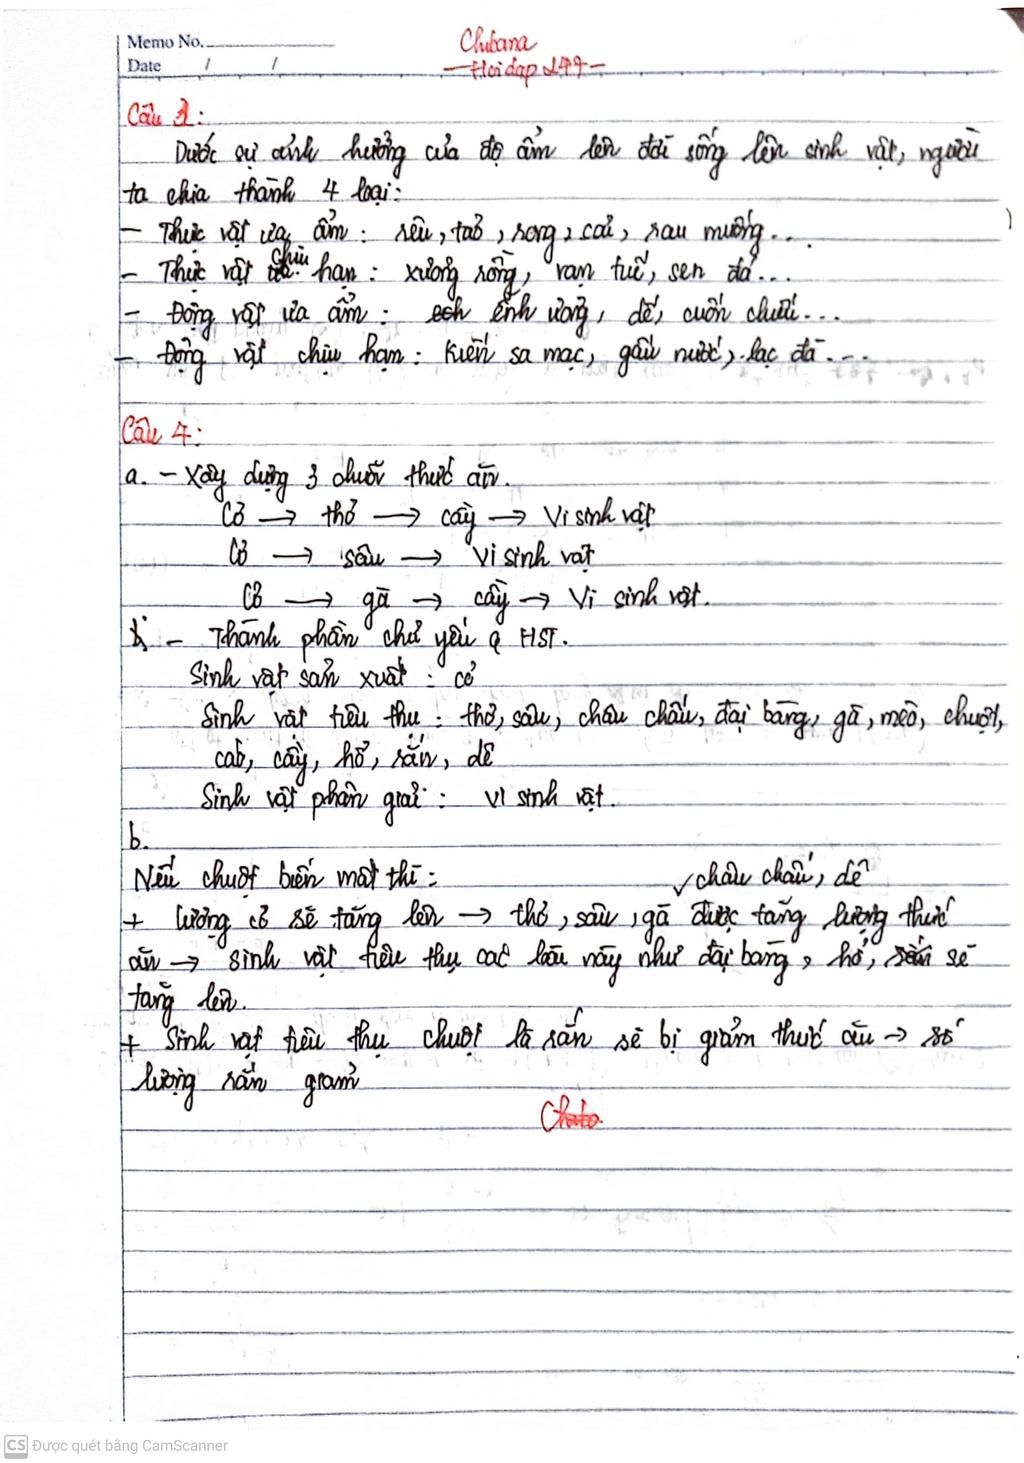 Memo No.
Chibana
Date / /
- Hoidap 247 -
Câu 3:
Dưới sự ảnh hưởng của độ ẩm lên đời sống lên sinh vật, người
ta chia thành 4 loại:
- Thực vật ưa ẩm: rêu, táo, rong, cải, rau muống...
- Thực vật chịu hạn: xương rồng, vạn tuế, sen đá...
- Động vật ưa ẩm: ễnh ương, dế, cuốn chiếu...
- Động vật chịu hạn: Kiến sa mạc, gấu nước, lạc đà...
Câu 4:
a. - Xây dựng 3 chuỗi thức ăn.
Cỏ → thỏ → cầy → Vi sinh vật
Cỏ → sâu → Vi sinh vật
Cỏ → gà → cầy → Vi sinh vật.
- Thành phần chủ yếu HST.
Sinh vật sản xuất: cỏ
Sinh vật tiêu thụ: thỏ, sâu, châu chấu, đại bàng, gà, mèo, chuột,
cáo, cầy, hổ, rắn, dê
Sinh vật phân giải: vi sinh vật.
b.
Nếu chuột biến mất thì:
châu chấu, dê
+ lượng cỏ sẽ tăng lên → thỏ, sâu, gà được tăng lượng thức
ăn → sinh vật tiêu thụ các loài này như đại bàng, hổ, sẽ
tăng lên.
+ Sinh vật tiêu thụ chuột là rắn sẽ bị giảm thức ăn → số
lượng rắn giảm
CS Được quét bằng CamScanner